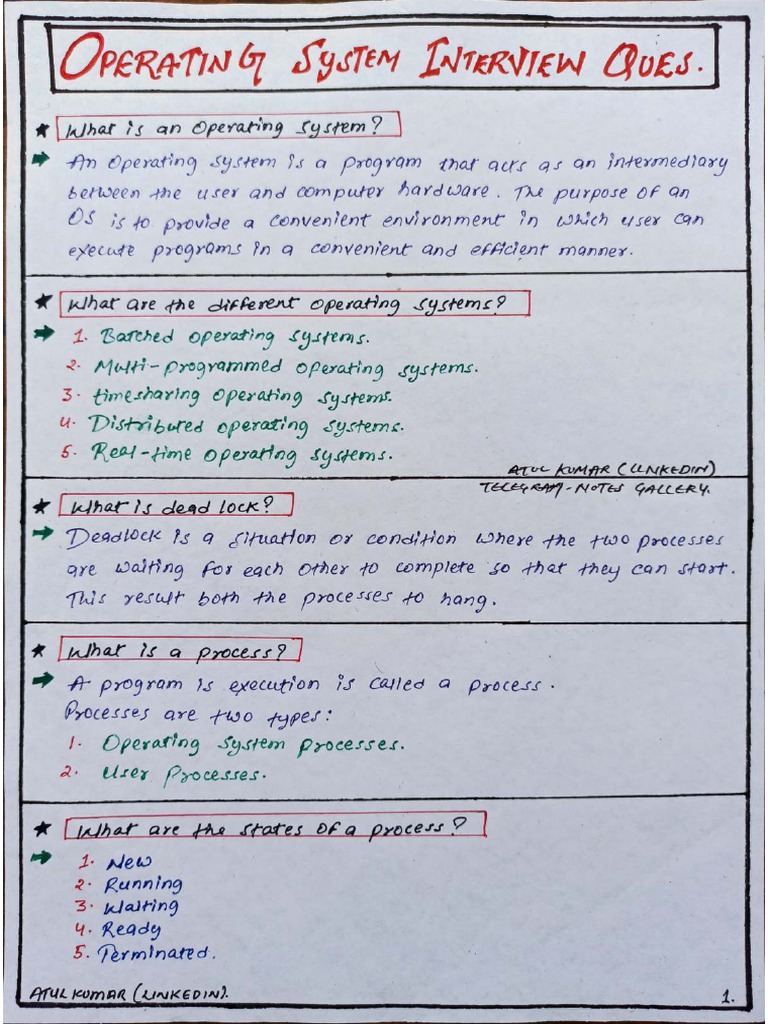 OPERATING SYSTEM INTERVIEW QUES.
★ What is an operating system?
→ An operating system is a program that acts as an intermediary
between the user and computer hardware. The purpose of an
OS is to provide a convenient environment in which user can
execute programs in a convenient and efficient manner.
★ What are the different operating systems?
→ 1. Batched operating systems.
2. Multi-programmed operating systems.
3. timesharing operating systems.
4. Distributed operating systems.
5. Real-time operating systems.
ATUL KUMAR (LINKEDIN)
TELEGRAM-NOTES GALLERY.
★ What is dead lock?
→ Deadlock is a situation or condition where the two processes
are waiting for each other to complete so that they can start.
This result both the processes to hang.
★ What is a process?
→ A program is execution is called a process.
Processes are two types:
1. Operating system processes.
2. User Processes.
★ What are the states of a process?
→ 1. New
2. Running
3. Waiting
4. Ready
5. Terminated.
ATUL KUMAR (LINKEDIN). 1.